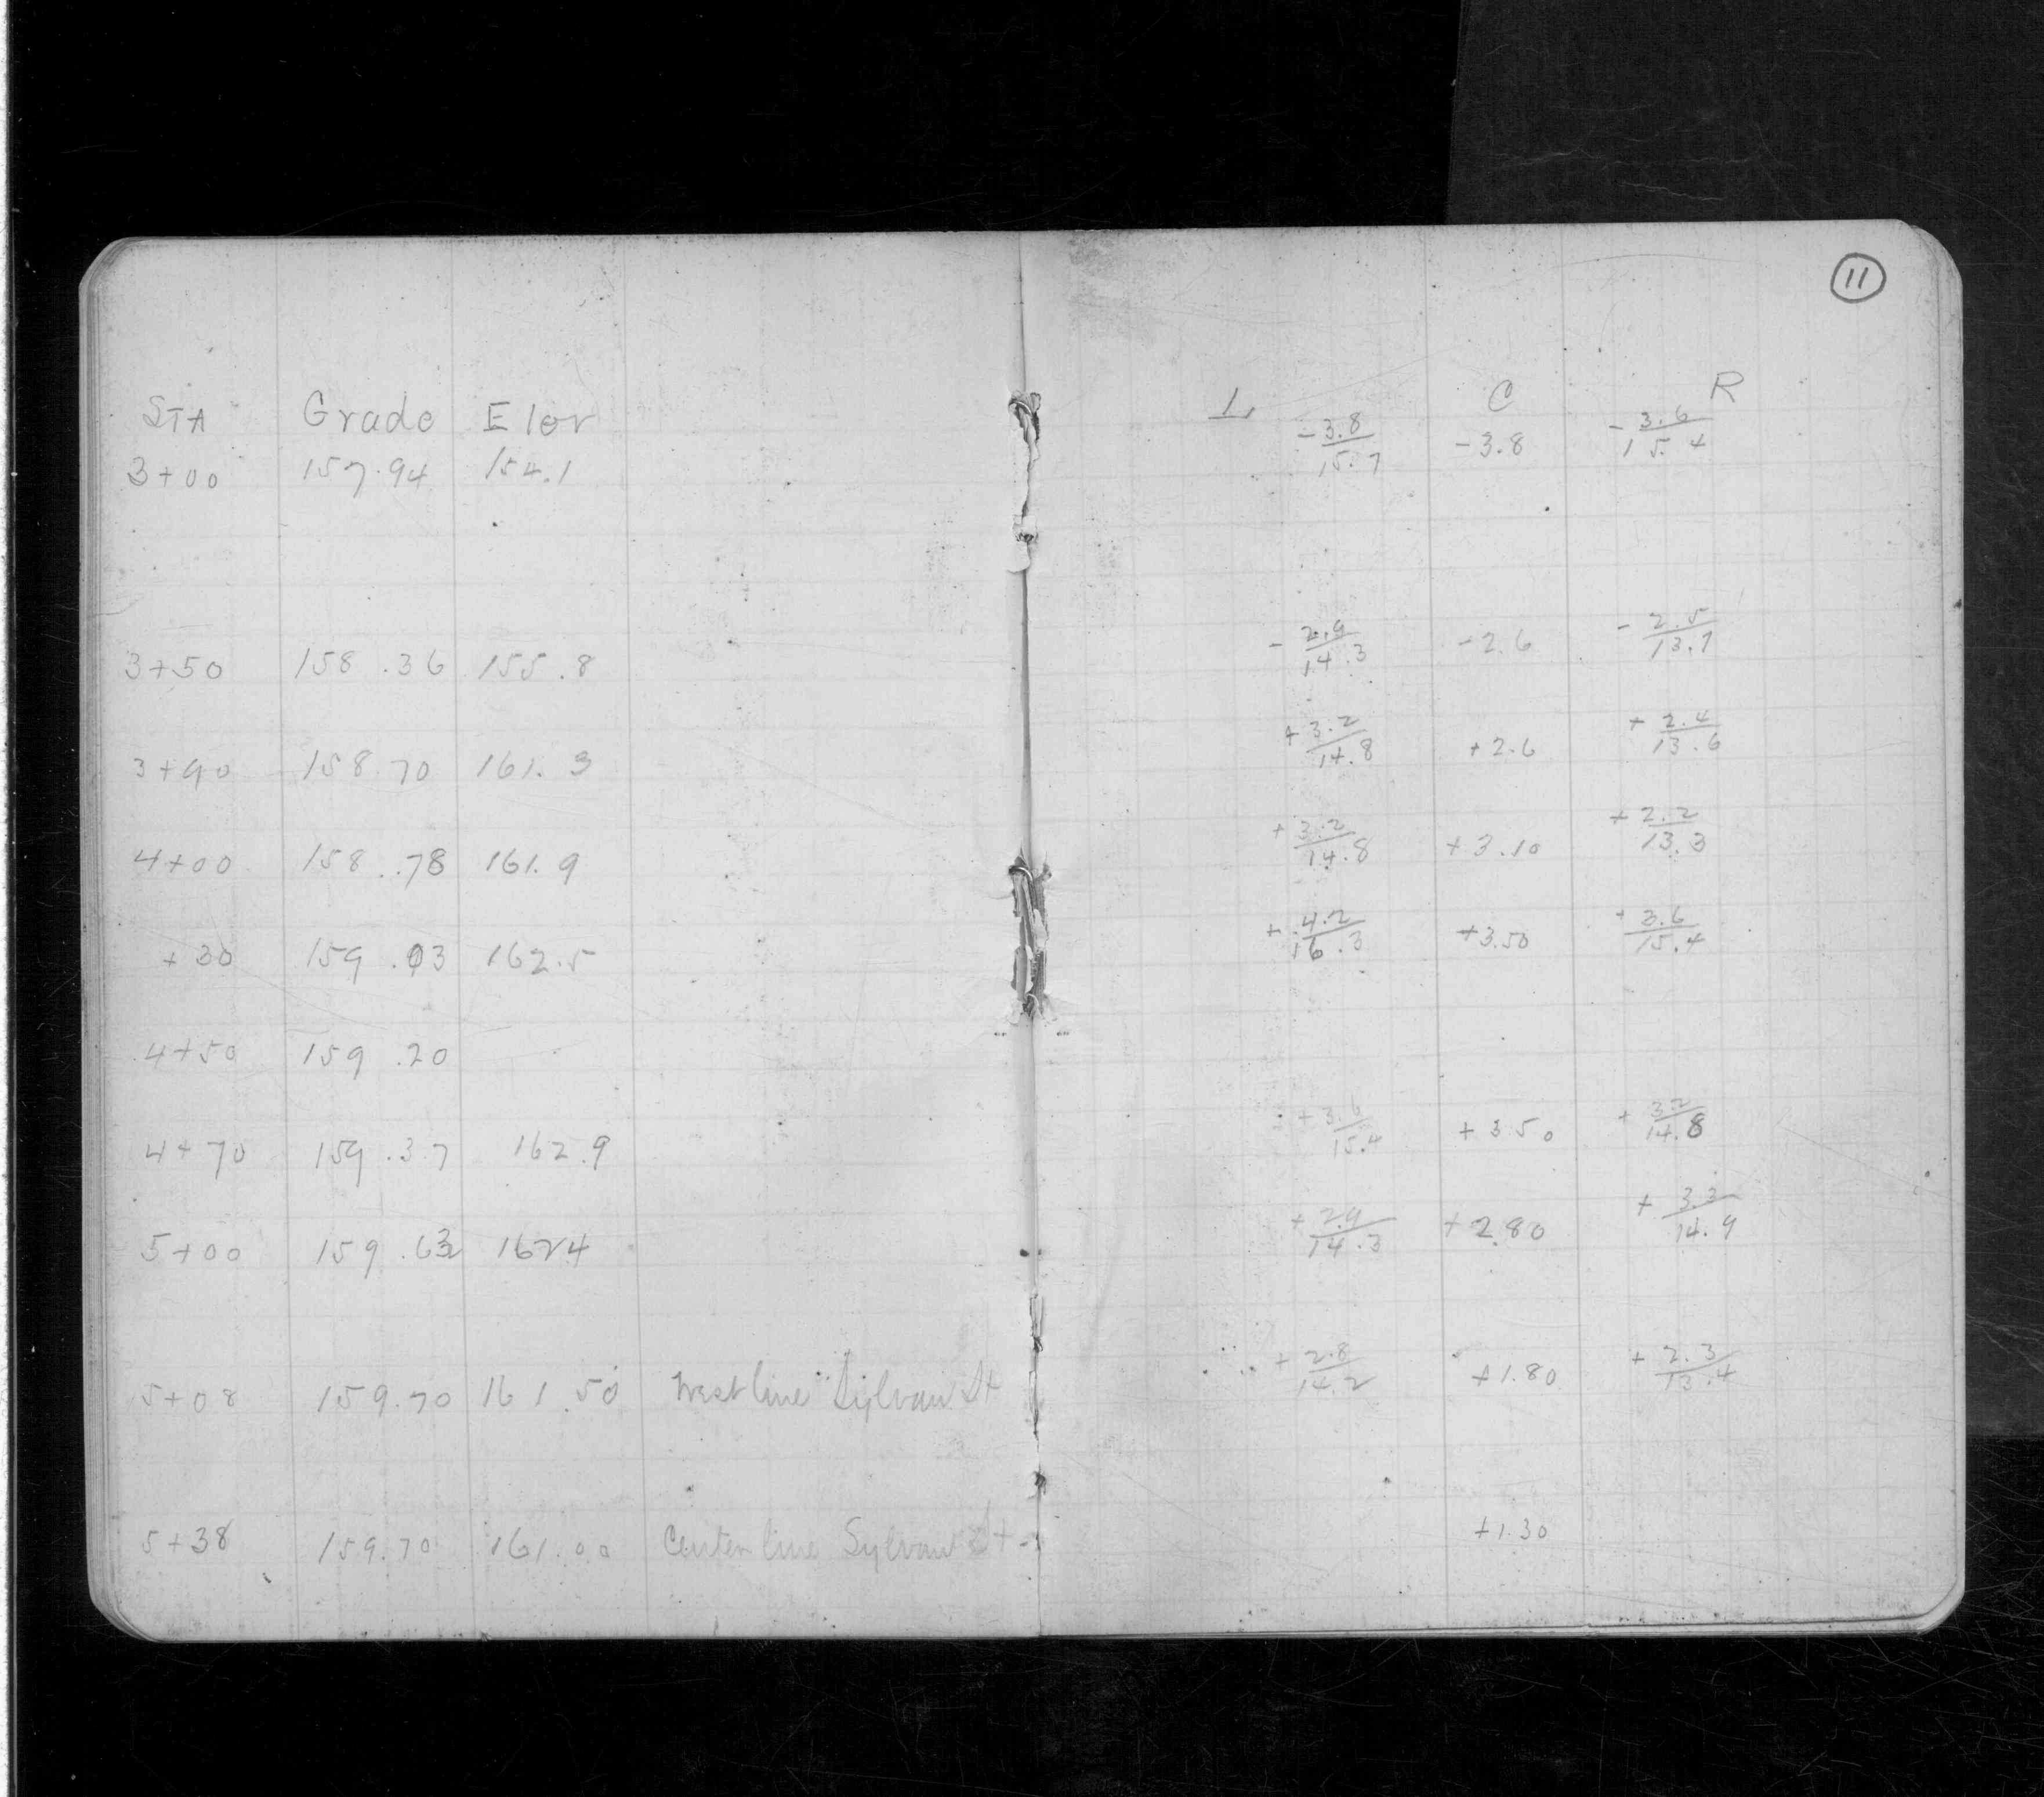 11
STA Grade Elev L C R
3+00 157.94 154.1 -3.8/15.7 -3.8 -3.6/15.4
3+50 158.36 155.8 -2.9/14.3 -2.6 -2.5/13.7
3+90 158.70 161.3 +3.2/14.8 +2.6 +2.4/13.6
4+00 158.78 161.9 +3.2/14.8 +3.10 +2.2/13.3
+30 159.03 162.5 +4.2/16.3 +3.50 +3.6/15.4
4+50 159.20
4+70 159.37 162.9 +3.6/15.4 +3.50 +3.2/14.8
5+00 159.63 162.4 +2.9/14.3 +2.80 +3.3/14.9
5+08 159.70 161.50 West line Sylvan St +2.8/14.2 +1.80 +2.3/13.4
5+38 159.70 161.00 Center line Sylvan St +1.30